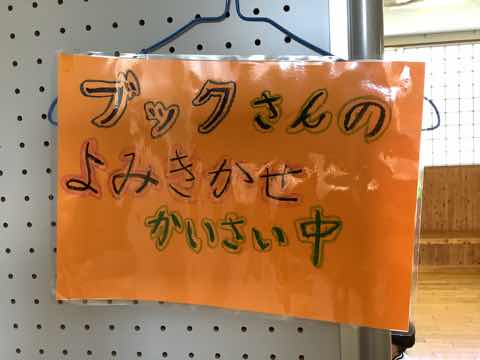 ブックさんの
よみきかせ
かいさい中